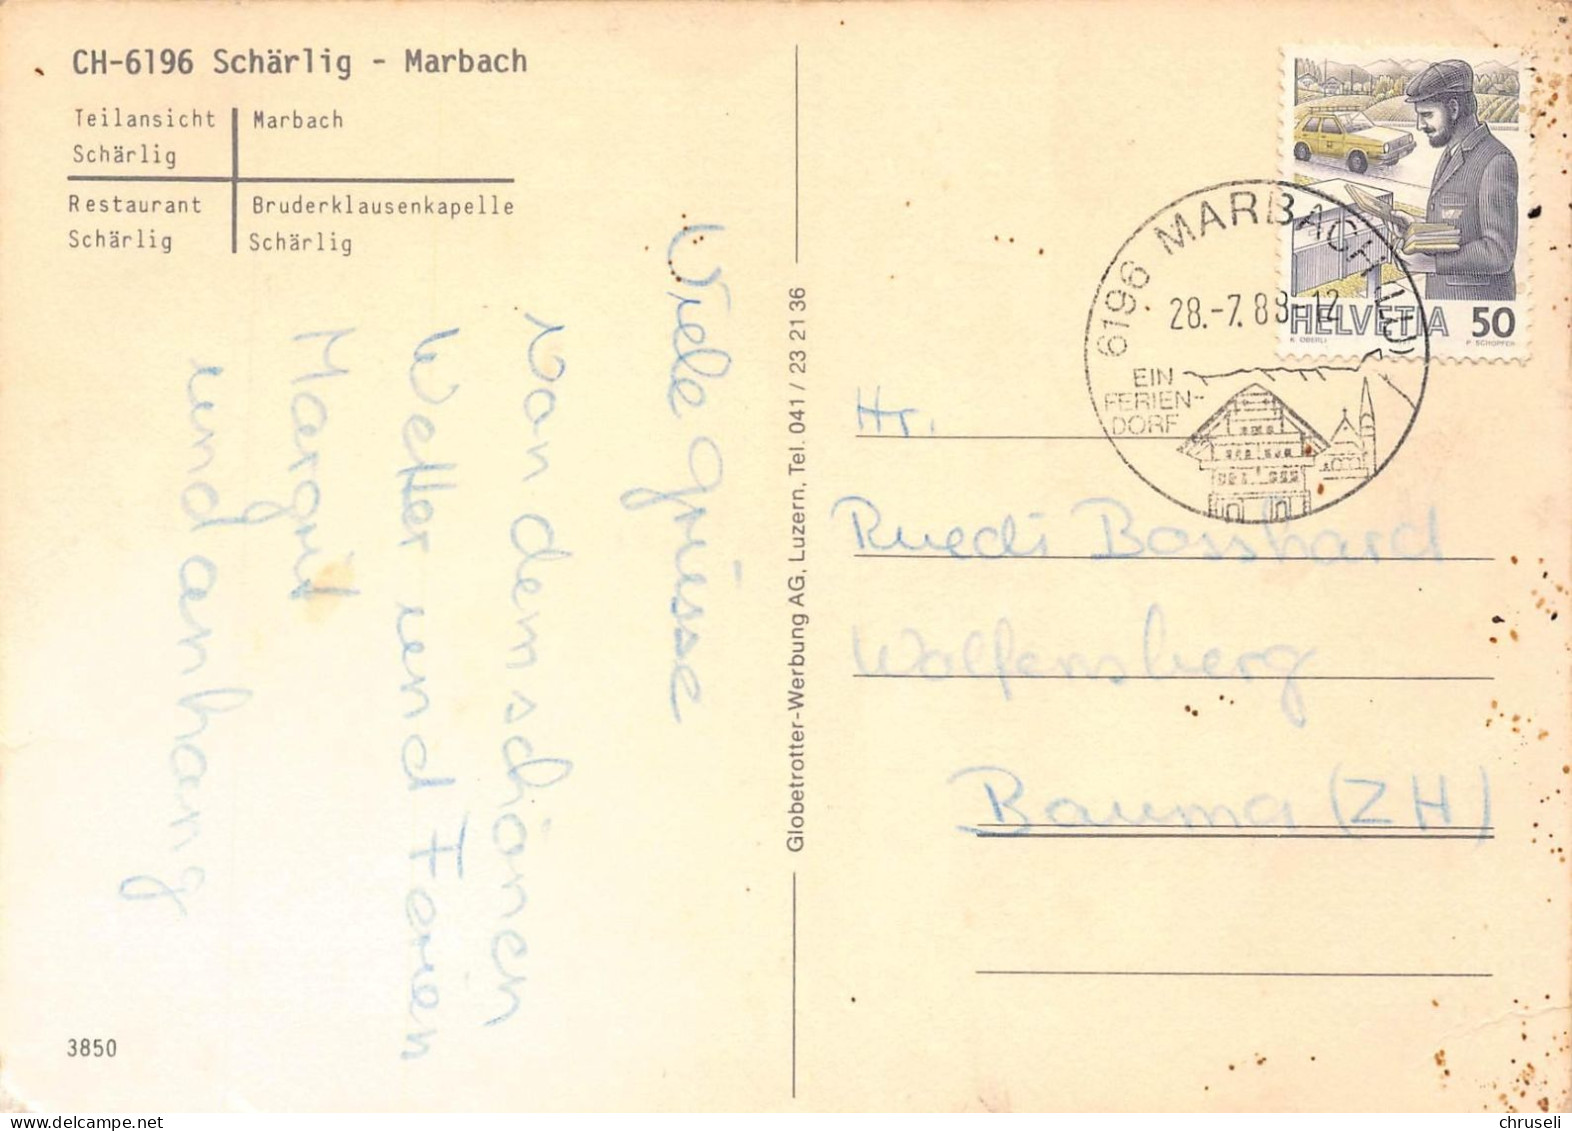 CH-6196 Schärlig - Marbach
Teilansicht
Schärlig
Marbach
Restaurant
Schärlig
Bruderklausenkapelle
Schärlig
Viele Grüsse
von dem schönen
Wetter und Ferien
Margrit
und anhang
3850
Globetrotter-Werbung AG, Luzern, Tel. 041 / 23 21 36
HELVETIA 50
K. OBERLI P. SCHOPFER
6196 MARBACH (LU)
28.-7.88-12
EIN
FERIEN-
DORF
Hr.
Ruedi Bosshard
Wolfensberg
Bauma (ZH)
chruseli